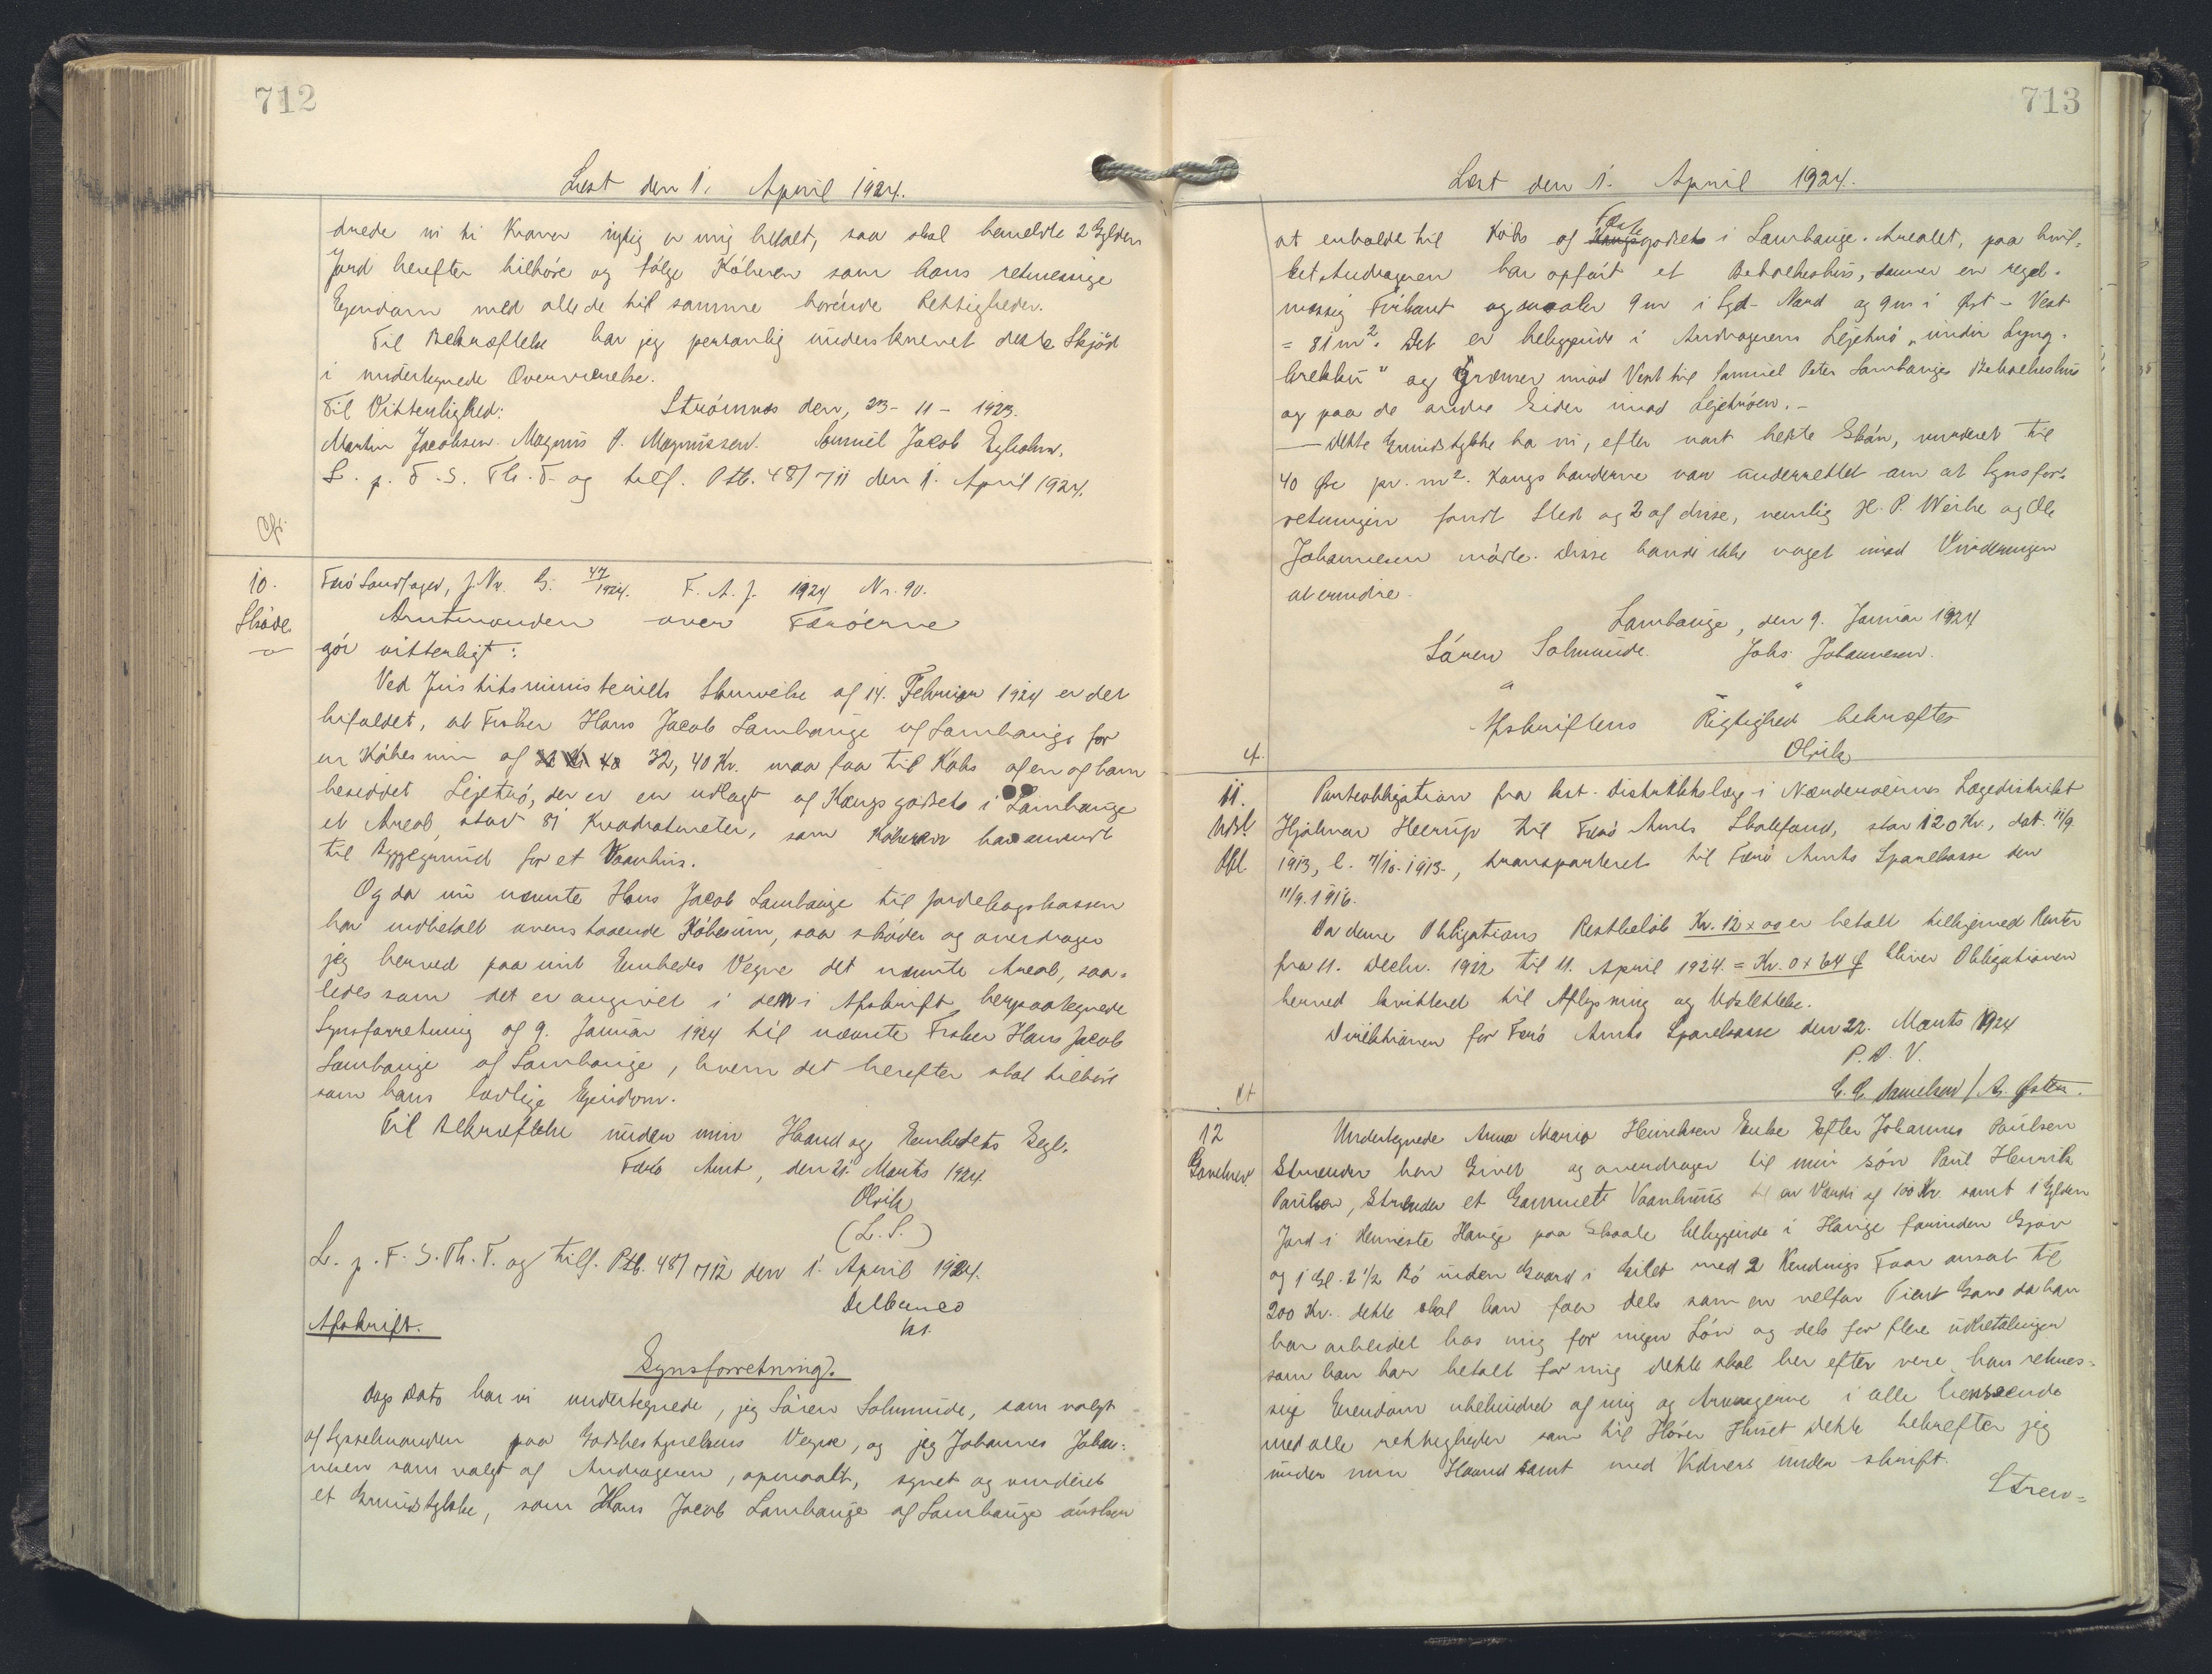 712
Læst den 1. April 1924.
drede ni ti Kroner rigtig er mig betalt, saa skal bemeldte 2 Gylden
Jord herefter tilhöre og fölge Köberen som hans retmessige
Ejendom med alle de til samme hörende Rettigheder.
Til Bekræftelse har jeg personlig underskrevet dette Skjöd
i undertegnede Overværelse.
Til Vitterlighed: Strömnæs den, 23-11-1923.
Martin Jacobsen. Magnus J. Magnussen. Samuel Jacob Eyholm.
L. p. F. S. Th. T. og tilf. Ptb. 48/711 den 1. April 1924.
Cfr.
10. Færö Landfoged, J. Nr. G. 47/1924. F. A. J. 1924 Nr. 90.
Skøde. Amtmanden over Færöerne
gör vitterligt:
Ved Justitsministeriets Skrivelse af 14. Februar 1924 er det
bifaldet, at Fisker Hans Jacob Lambauge af Lambauge for
en Köbesum af 32,40 Kr. maa faa til Köbs af en af ham
besiddet Lejetrö, der er en udlagt af Kongsgodsets i Lambauge
et Areal, stort 81 Kvadratmeter, som Köberen har anvendt
til Byggegrund for et Vaanhus.
Og da nu nævnte Hans Jacob Lambauge til Jordebogskassen
har indbetalt ovenstaaende Köbesum, saa sköder og overdrager
jeg herved paa mit Embedes Vegne det nævnte Areal, saa-
ledes som det er angivet i den i Afskrift herpaategnede
Synsforretning af 9. Januar 1924 til nævnte Fisker Hans Jacob
Lambauge af Lambauge, hvem det herefter skal tilhöre
som hans lovlige Ejendom.
Til Bekræftelse under min Haand og Embedets Segl.
Færö Amt, den 21. Marts 1924
Olrik
(L.S.)
L. p. F. S. Th. T. og tilf. Ptb. 48/712 den 1. April 1924.
Delbanco
kst.
Afskrift.
Synsforretning.
Dags Dato har vi undertegnede, jeg Sören Solmunde, som valgt
af Sysselmanden paa Godsbestyrelsens Vegne, og jeg Johannes Johan-
nesen som valgt af Andrageren, opmaalt, synet og vurderet
et Grundstykke, som Hans Jacob Lambauge af Lambauge önsker
713
Læst den 1. April 1924.
at erholde til Köbs af Fæste Kongsgodsets i Lambauge. Arealet, paa hvil-
ket Andrageren har opfört et Beboelseshus, danner en regel-
mæssig Firkant og maaler 9m i Syd-Nord og 9m i Øst-Vest
= 81 m². Det er beliggende i Andragerens Lejetrö „undir Lyng-
brekku" og grænser mod Vest til Samuel Peter Lambauges Beboelseshus
og paa de andre Sider mod Lejetröen.-
- Dette Grundstykke ha vi, efter vort bedste Skön, vurderet til
40 Øre pr. m². Kongsbönderne var underrettet om at Synsfor-
retningen fandt Sted og 2 af disse, nemlig H. P. Weihe og Ole
Johannesen mödte. Disse havde ikke noget imod Vurderingen
at erindre.
Lambauge, den 9. Januar 1924
Sören Solmunde. Johs. Johannesen.
Afskriftens Rigtighed bekræftes
Olrik
cf.
11. Panteobligation fra kst. Distriktslæge i Nordreøernes Lægedistrikt
Udsl. Hjalmar Heerup til Færö Amts Skolefond, stor 120 Kr., dat. 11/9
Obl. 1913, l. 7/10-1913, transporteret til Færö Amts Sparekasse den
11/9. 1916.
Da denne Obligations Restbelöb Kr. 12 x 00 er betalt tilligemed Renter
fra 11. Decbr. 1922 til 11. April 1924 = Kr. 0 x 64 bliver Obligationen
herved kvitteret til Aflysning og Udslettelse.
Direktionen for Færö Amts Sparekasse den 22. Marts 1924
P. D. V.
C. C. Danielsen / A. Østen.
cf
12 Undertegnede Anna Maria Heinriksen Enke Efter Johannes Paulsen
Gavebrev. Strænder har Givet og overdrager til min sön Paul Henrik
Paulsen, Strænder et Gammelt Vaanhuus til en Værdi af 100 Kr. samt 1 Gylden
Jord i Heimeste Hauge paa Skaale beliggende i Hauge forinden Gjov
og 1 Gl. 2 1/2 Sk. inden Gaard i Gilet med 2 Kendnings Faar ansat til
200 Kr. dette skal han faa dels som en velfor Tient Gave da han
har arbeidet hos mig for ingen Lön og dels for flere udbetalinger
som han har betalt for mig dette skal her efter vere han retmes-
sige Eiendom ubehindret af mig og Arvingerne i alle henseende
med alle rettigheder som til Hörer Huset dette bekrefter jeg
under min Haand samt med Vidners under skrift.
Stren-